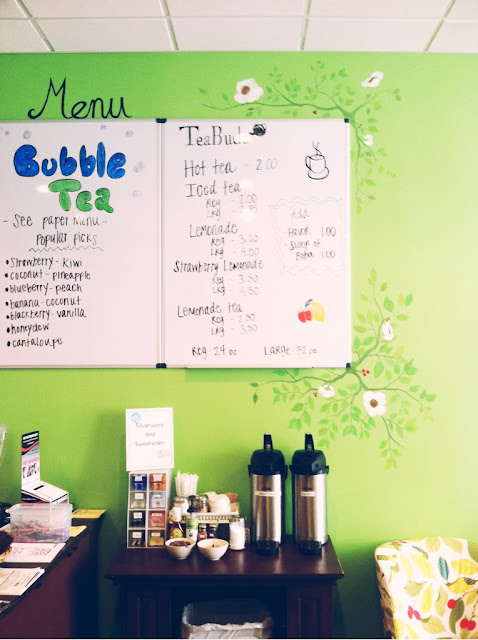 Menu
Bubble
Tea
- See paper Menu -
Popular Picks
• Strawberry - Kiwi
• coconut - pineapple
• blueberry - peach
• banana - coconut
• blackberry - vanilla
• honeydew
• cantaloupe
TeaBuds
Hot tea - 2.00
Iced tea
Reg - 2.00
Lrg -
Lemonade
Reg - 3.00
Lrg - 4.00
Strawberry Lemonade
Reg - 3.50
Lrg - 4.50
Lemonade tea
Reg - 2.50
Lrg - 3.50
Reg 24 oz Large 32 oz
Add
Flavor 1.00
Scoop of
Boba 1.00
and
Sweeteners